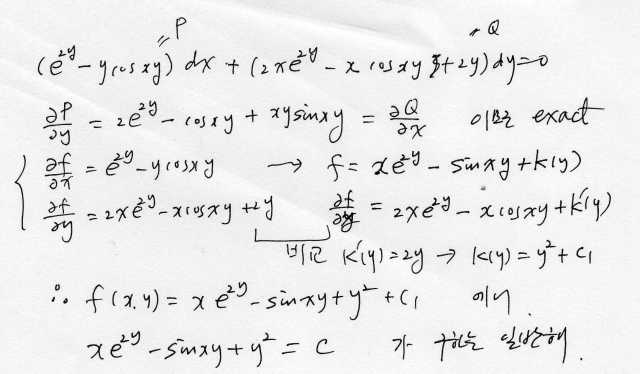 " P " Q
(e^{2y} - y cos xy) dx + (2xe^{2y} - x cos xy + 2y) dy = 0
∂P/∂y = 2e^{2y} - cos xy + xy sin xy = ∂Q/∂x 이므로 exact
∂f/∂x = e^{2y} - y cos xy → f = xe^{2y} - sin xy + k(y)
∂f/∂y = 2xe^{2y} - x cos xy + 2y ∂f/∂y = 2xe^{2y} - x cos xy + k'(y)
비교 k'(y) = 2y → k(y) = y^2 + c₁
∴ f(x,y) = x e^{2y} - sin xy + y^2 + c₁ 이니
xe^{2y} - sin xy + y^2 = c 가 구하는 일반해.